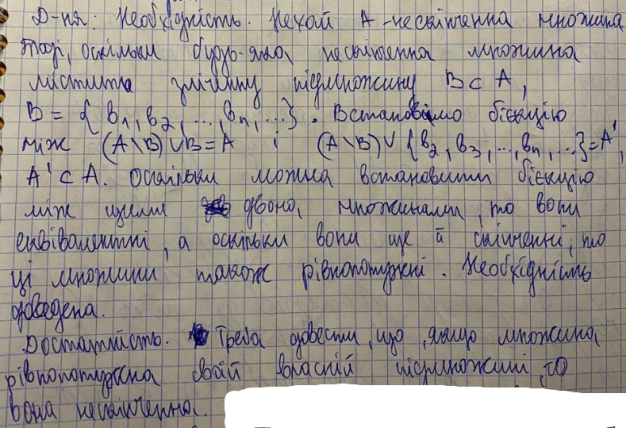 Д-ня: Необхідність. Нехай А - нескінченна множина
Тоді, оскільки будь-яка нескінченна множина
містить злічинну підмножину B⊂A,
B = {b₁, b₂, ..., bₙ, ...}. Встановімо бієкцію
між (A\B)∪B=A і (A\B)∪{b₂, b₃, ..., bₙ, ...}=A',
A'⊂A. Оскільки можна встановити бієкцію
між цими двома множинами, то вони
еквівалентні, а оскільки вони ще й скінченні, то
ці множини також рівнопотужні. Необхідність
доведена.
Достатність. Треба довести, що, якщо множина
рівнопотужна своїй власній підмножині то
вона нескінченна.